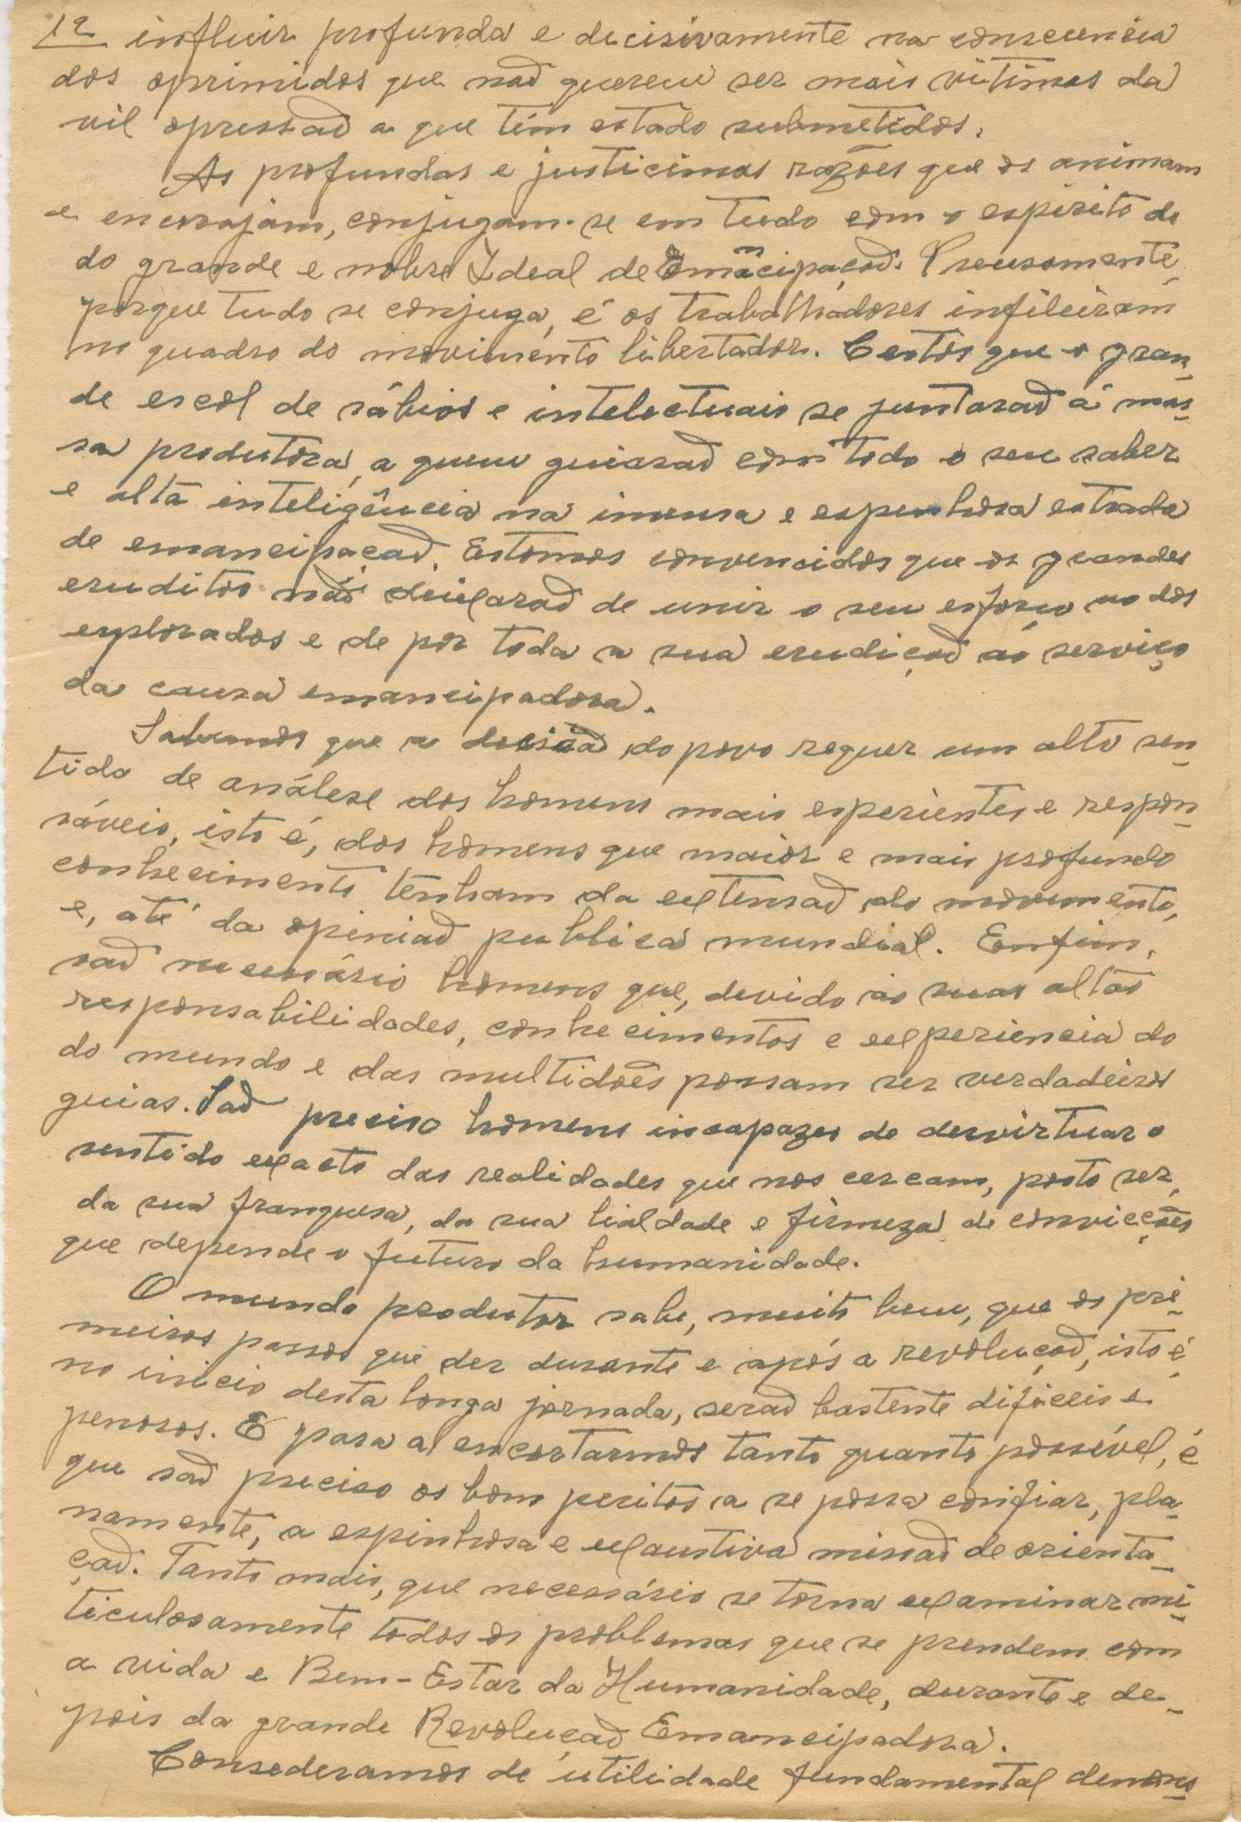 12 influir profunda e decisivamente na consciencia
dos oprimidos que naõ querem ser mais vitimas da
vil opressaõ a que têm estado submetidos.
As profundas e justicimas razões que os animam
e encorajam, conjugam-se em tudo com o espirito do
do grande e nobre Ideal de Emancipaçaõ. Precisamente,
porque tudo se conjuga, é os trabalhadores infileiram
no quadro do movimento libertador. Certos que o gran-
de escol de sábios e intelectuais se juntaraõ á mas-
sa produtora, a quem guiaraõ com todo o seu saber
e alta inteligência na imensa e espinhosa estrada
de emancipaçaõ. Estamos convencidos que os grandes
eruditos naõ deixaraõ de unir o seu esforço ao dos
explorados e de por toda a sua erudiçaõ ao serviço
da causa emancipadora.
Sabemos que a decisaõ do povo requer um alto sen-
tido de análese dos homens mais esperientes e respon-
sáveis, isto é, dos homens que maior e mais profundo
conhecimento tenham da extensaõ do movimento,
e, até da opiniaõ publica mundial. Enfim,
saõ necessário homens que, devido ás suas altas
responsabilidades, conhecimentos e experiencia do
do mundo e das multidões possam ser verdadeiros
guias. Saõ preciso homens incapazes de desvirtuar o
sentido exacto das realidades que nos cercam, posto ser,
da sua franquesa, da sua lialdade e firmeza de convicções
que depende o futuro da humanidade.
O mundo produtor sabe, muito bem, que os pri-
meiros passos que der durante e após a revoluçaõ, isto é,
no inicio desta longa jornada, seraõ bastente difíceis e
penosos. E para a encortarmos tanto quanto possível, é
que saõ preciso os bons peritos a se possa confiar, pla-
namente, a espinhosa e exaustiva missaõ de orienta-
çaõ. Tanto mais, que necessário se torna examinar mi-
ticulosamente todos os problemas que se prendem com
a vida e Bem-Estar da Humanidade, durante e de-
pois da grande Revoluçaõ Emancipadora.
Consederamos de utilidade fundamental demons-